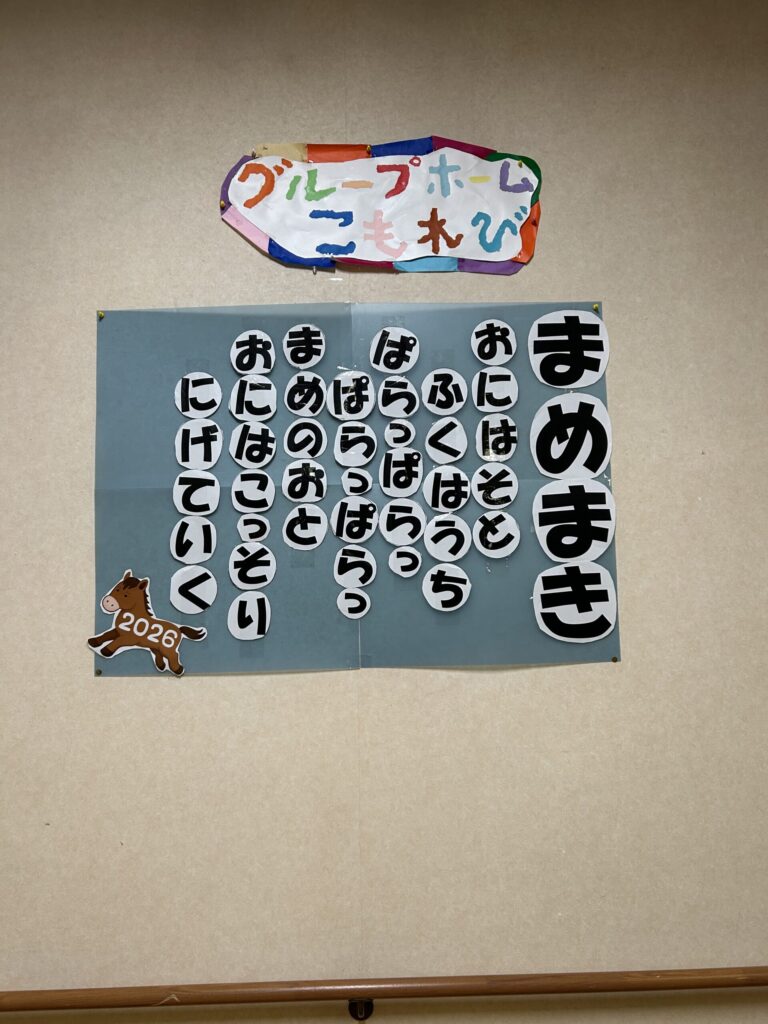 グループホーム
こもれび
まめまき
おにはそと
ふくはうち
ぱらっぱらっ
ぱらっぱらっ
まめのおと
おにはこっそり
にげていく
2026